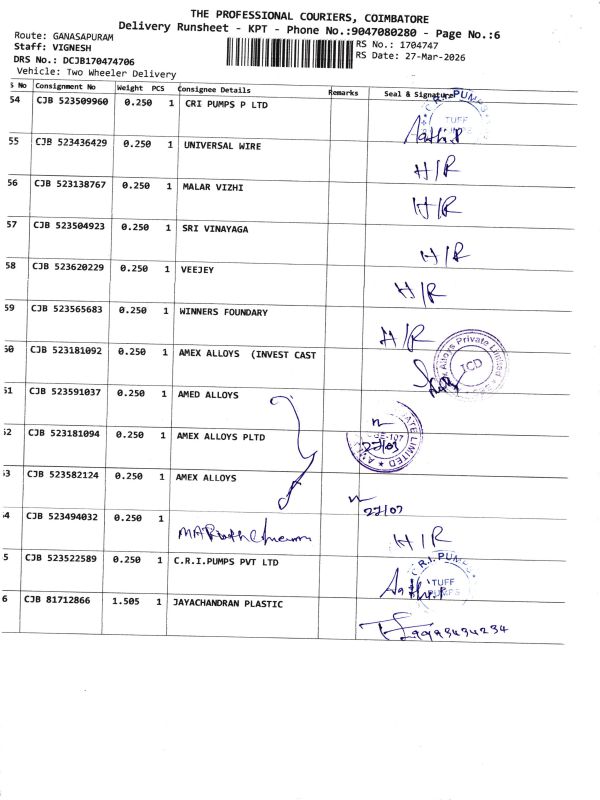 THE PROFESSIONAL COURIERS, COIMBATORE
Delivery Runsheet - KPT - Phone No.:9047080280 - Page No.:6
Route: GANASAPURAM
Staff: VIGNESH
DRS No.: DCJB170474706
Vehicle: Two Wheeler Delivery
RS No.: 1704747
RS Date: 27-Mar-2026
S No Consignment No Weight PCS Consignee Details Remarks Seal & Signature
54 CJB 523509960 0.250 1 CRI PUMPS P LTD
C.R.I. PUMPS TUFF PUMPS
55 CJB 523436429 0.250 1 UNIVERSAL WIRE H/R
56 CJB 523138767 0.250 1 MALAR VIZHI H/R
57 CJB 523504923 0.250 1 SRI VINAYAGA H/R
58 CJB 523620229 0.250 1 VEEJEY H/R
59 CJB 523565683 0.250 1 WINNERS FOUNDARY H/R
60 CJB 523181092 0.250 1 AMEX ALLOYS (INVEST CAST
Alloys Private Limited ICD
51 CJB 523591037 0.250 1 AMED ALLOYS
52 CJB 523181094 0.250 1 AMEX ALLOYS PLTD
27/03
53 CJB 523582124 0.250 1 AMEX ALLOYS
27/03
54 CJB 523494032 0.250 1 H/R
5 CJB 523522589 0.250 1 C.R.I.PUMPS PVT LTD
C.R.I. PUMPS TUFF PUMPS
6 CJB 81712866 1.505 1 JAYACHANDRAN PLASTIC